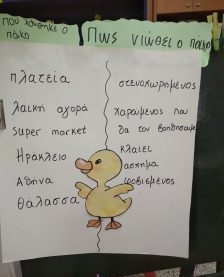 Που χάθηκε ο
πάκο
Πως νιώθει ο πάκο
πλατεία
λαϊκή αγορά
super market
Ηράκλειο
Αθήνα
θάλασσα
στεναχωρημένος
χαρούμενος που
θα τον βοηθήσουμε
κλαίει
άσχημα
φοβισμένος